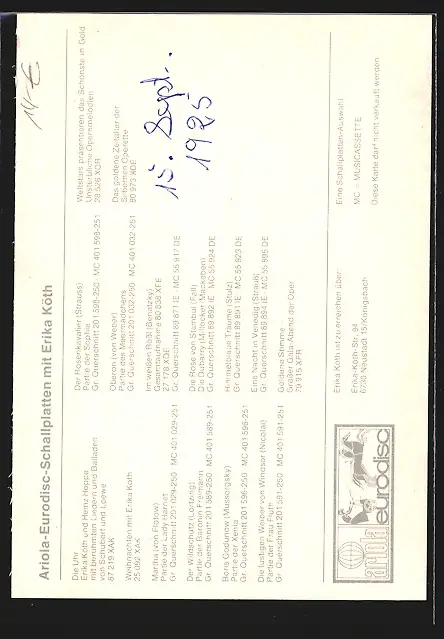 Ariola-Eurodisc-Schallplatten mit Erika Köth
Die Uhr
Erika Köth und Heinz Hoppe
mit berühmten Liedern und Balladen
von Schubert und Loewe
87 219 XAK
Weihnachten mit Erika Köth
25 092 XAK
Martha (von Flotow)
Partie der Lady Harriet
Gr. Querschnitt 201 029-250 MC 401 029-251
Der Wildschütz (Lortzing)
Partie der Baronin Freimann
Gr. Querschnitt 201 589-250 MC 401 589-251
Boris Godunow (Mussorgsky)
Partie der Xenia
Gr. Querschnitt 201 596-250 MC 401 596-251
Die lustigen Weiber von Windsor (Nicolai)
Partie der Frau Fluth
Gr. Querschnitt 201 591-250 MC 401 591-251
Der Rosenkavalier (Strauss)
Partie der Sophie
Gr. Querschnitt 201 598-250 MC 401 598-251
Oberon (von Weber)
Partie des Meermädchens
Gr. Querschnitt 201 032-250 MC 401 032-251
Im weißen Rößl (Benatzky)
Gesamtaufnahme 80 838 XFE
27 178 XDE
Gr. Querschnitt 89 871 IE MC 55 917 DE
Die Rose von Stambul (Fall)
Die Dubarry (Millöcker/Mackeben)
Gr. Querschnitt 89 892 IE MC 55 924 DE
Himmelblaue Träume (Stolz)
Gr. Querschnitt 89 891 IE MC 55 923 DE
Eine Nacht in Venedig (Strauss)
Gr. Querschnitt 89 894 IE MC 55 895 DE
Goldene Stimme
Großer Gala-Abend der Oper
79 915 XFR
Weltstars präsentieren das Schönste in Gold
Unsterbliche Opernmelodien
29 526 XDR
Das goldene Zeitalter der
Silbernen Operette
80 973 XDE
15. Sept.
1985
14 €
ariola
eurodisc
Erika Köth ist zu erreichen über:
Erika-Köth-Str. 94
6730 Neustadt 15/Königsbach
Eine Schallplatten-Auswahl
MC = MUSICASSETTE
Diese Karte darf nicht verkauft werden